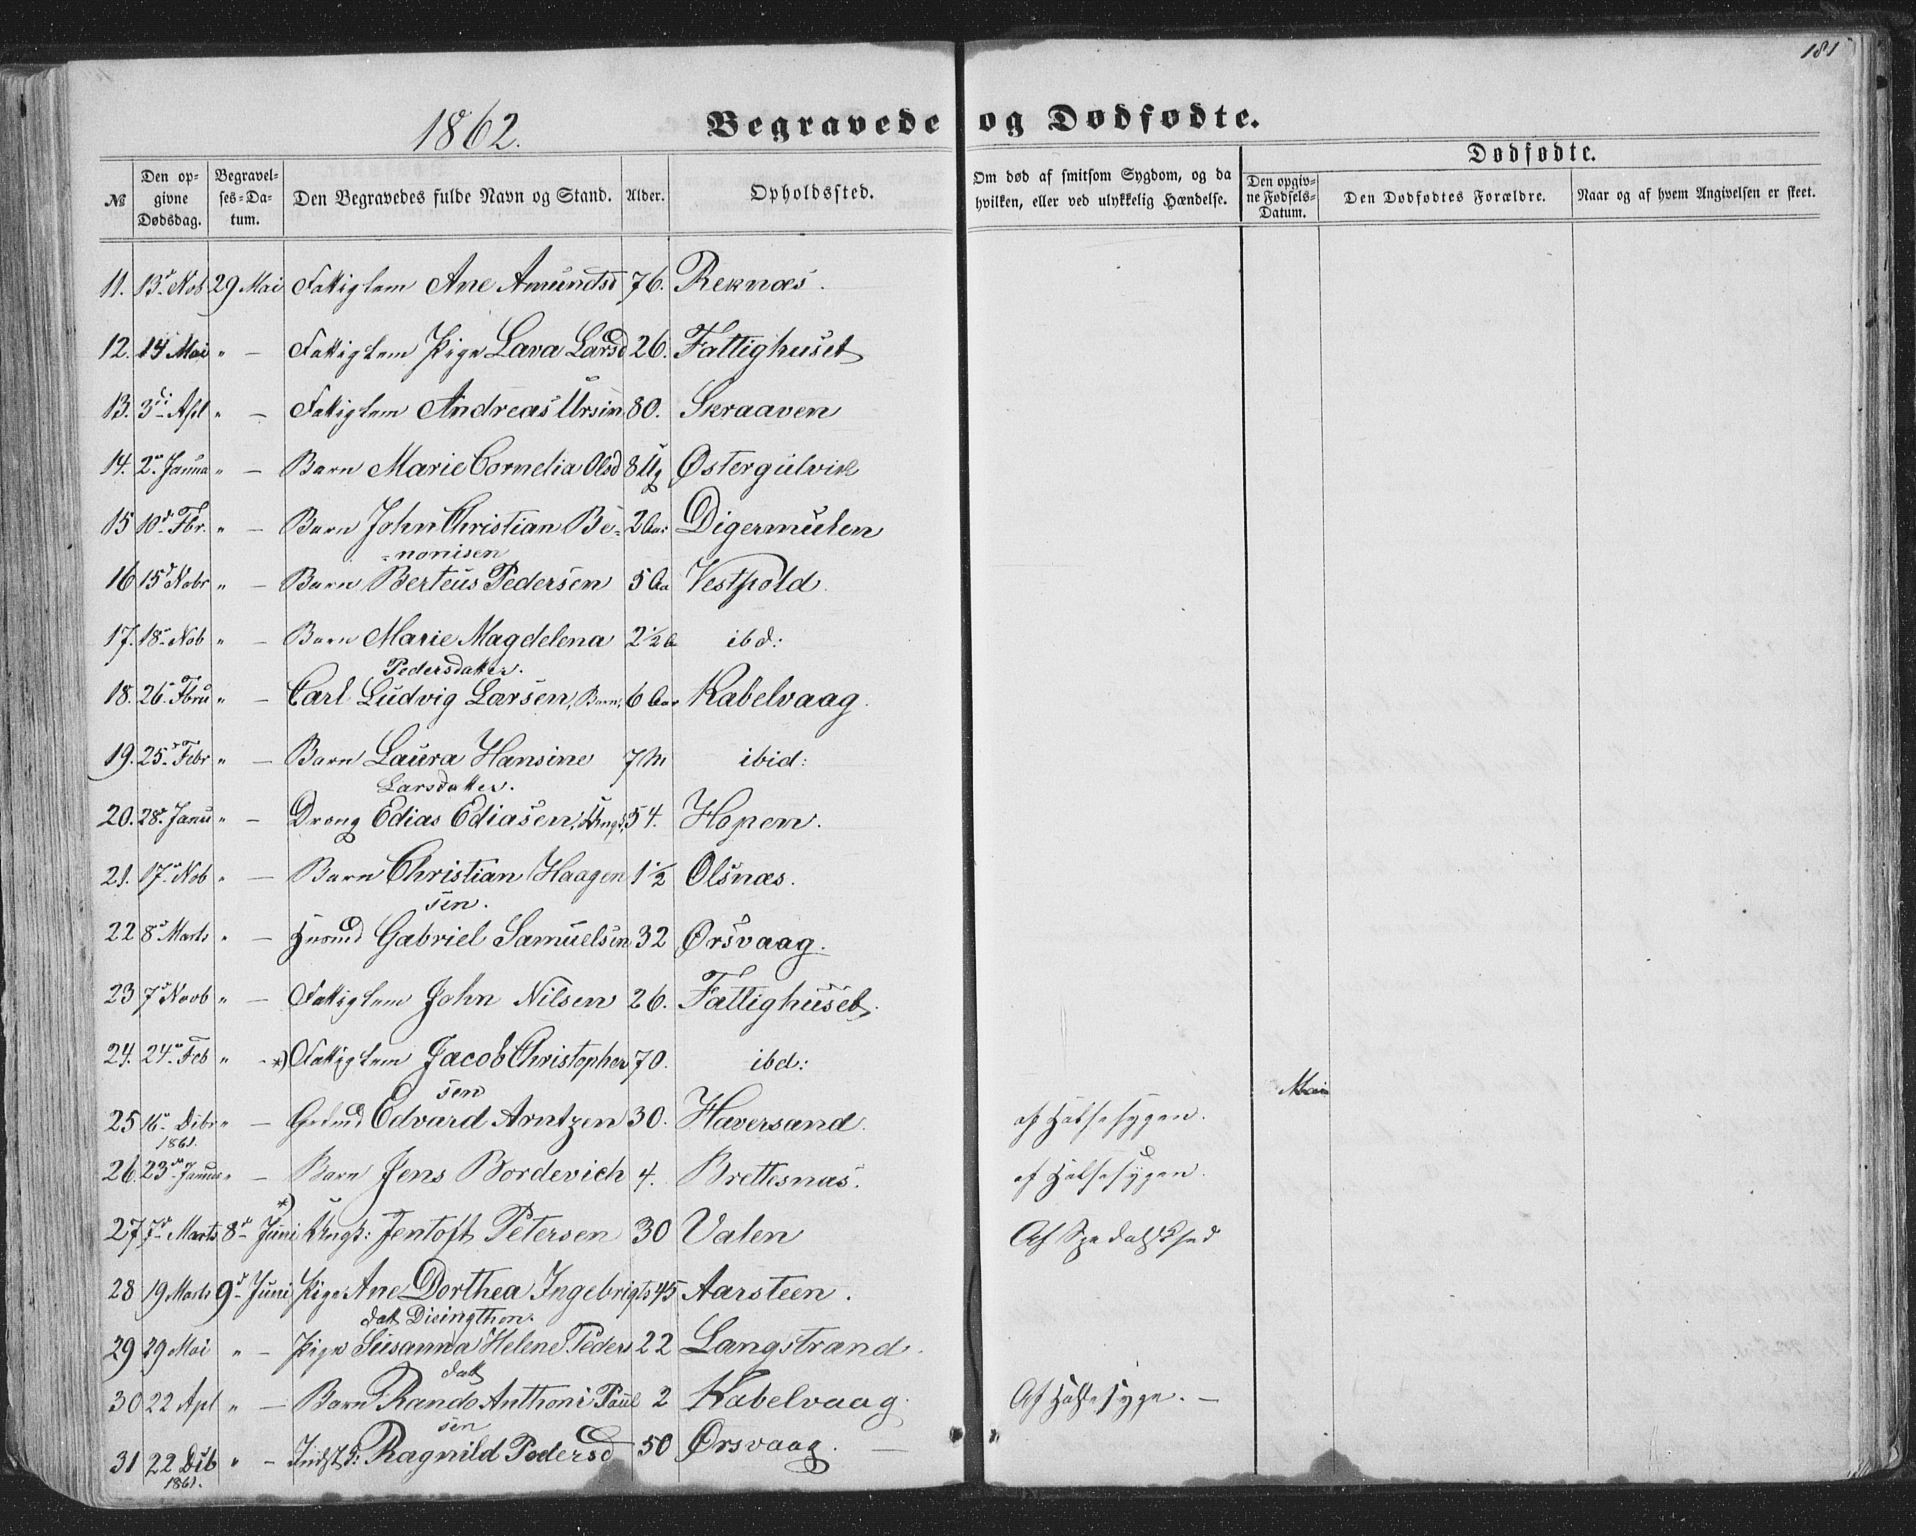 181
1862.
Begravede og Dødfødte.
№ Den opgivne Dødsdag. Begravelses-Datum. Den Begravedes fulde Navn og Stand. Alder. Opholdssted. Om død af smitsom Sygdom, og da hvilken, eller ved ulykkelig Hændelse. Dødfødte. Den opgivne Fødsels-Datum. Den Dødfødtes Forældre. Naar og af hvem Angivelsen er skeet.
11. 13de Nob 29 Mai Fattiglem Ane Amundsd 76. Reknæs.
12. 14 Mai " — Fattiglem Pige Lava Larsd 26. Fattighuset
13. 3die Apl " — Fattiglem Andreas Ursin 80. Skraaven
14. 2n Janua " — Barn Marie Cornelia Olsd 8 Ug Østergulvik
15 10d Fbr. " — Barn John Christian Be= 2 Aar Digermulen
=nonisen
16 15d Nobr " — Barn Berteus Pedersen 5 Aa Vestpold.
17. 18d Nob " — Barn Marie Magdelena 2½ A ibd:
Pedersdatter.
18. 26d Fbru " — Carl Ludvig Larsen, Barn, 6 Aar Kabelvaag.
19. 25d Febr " — Barn Laura Hansine 7 M ibid:
Larsdatter.
20. 28d Janu " — Dreng Edias Ediasen, Ungk, 54. Hopen.
21. 17d Nob " — Barn Christian Haagen 1½ Olsnæs.
sen.
22 8d Marts " — Husmd Gabriel Samuelsen 32 Ørsvaag.
23 7d Novb " — Fattiglem John Nilsen 26. Fattighuset.
24. 24d Feb " — *) Fattiglem Jacob Christopher 70. ibd:
sen
Mai
25 16d Dibr " — Grdmd Edvard Arntzen 30. Haversand. af Halsesygen.
1861.
26. 23de Januar " — Barn Jens Bordevich 4. Brettesnæs. af Halsesygen.
*)
27 7d Marts 8d Juni Ungk: Jentoft Petersen 30 Valen Af Spedalskhed
28 19 Marts 9d Juni Pige Ane Dorthea Ingebrigts 45 Aarsteen.
dat Disingthon.
29 29 Mai " — Pige Susanna Helene Peders 22 Langstrand.
datt
30 22 Apl " — Barn Rando Anthoni Paul 2 Kabelvaag. Af Halsesyge. —
sen
31 22 Dib " — Indst: Ragnild Pedersd 50 Ørsvaag. —
1861.